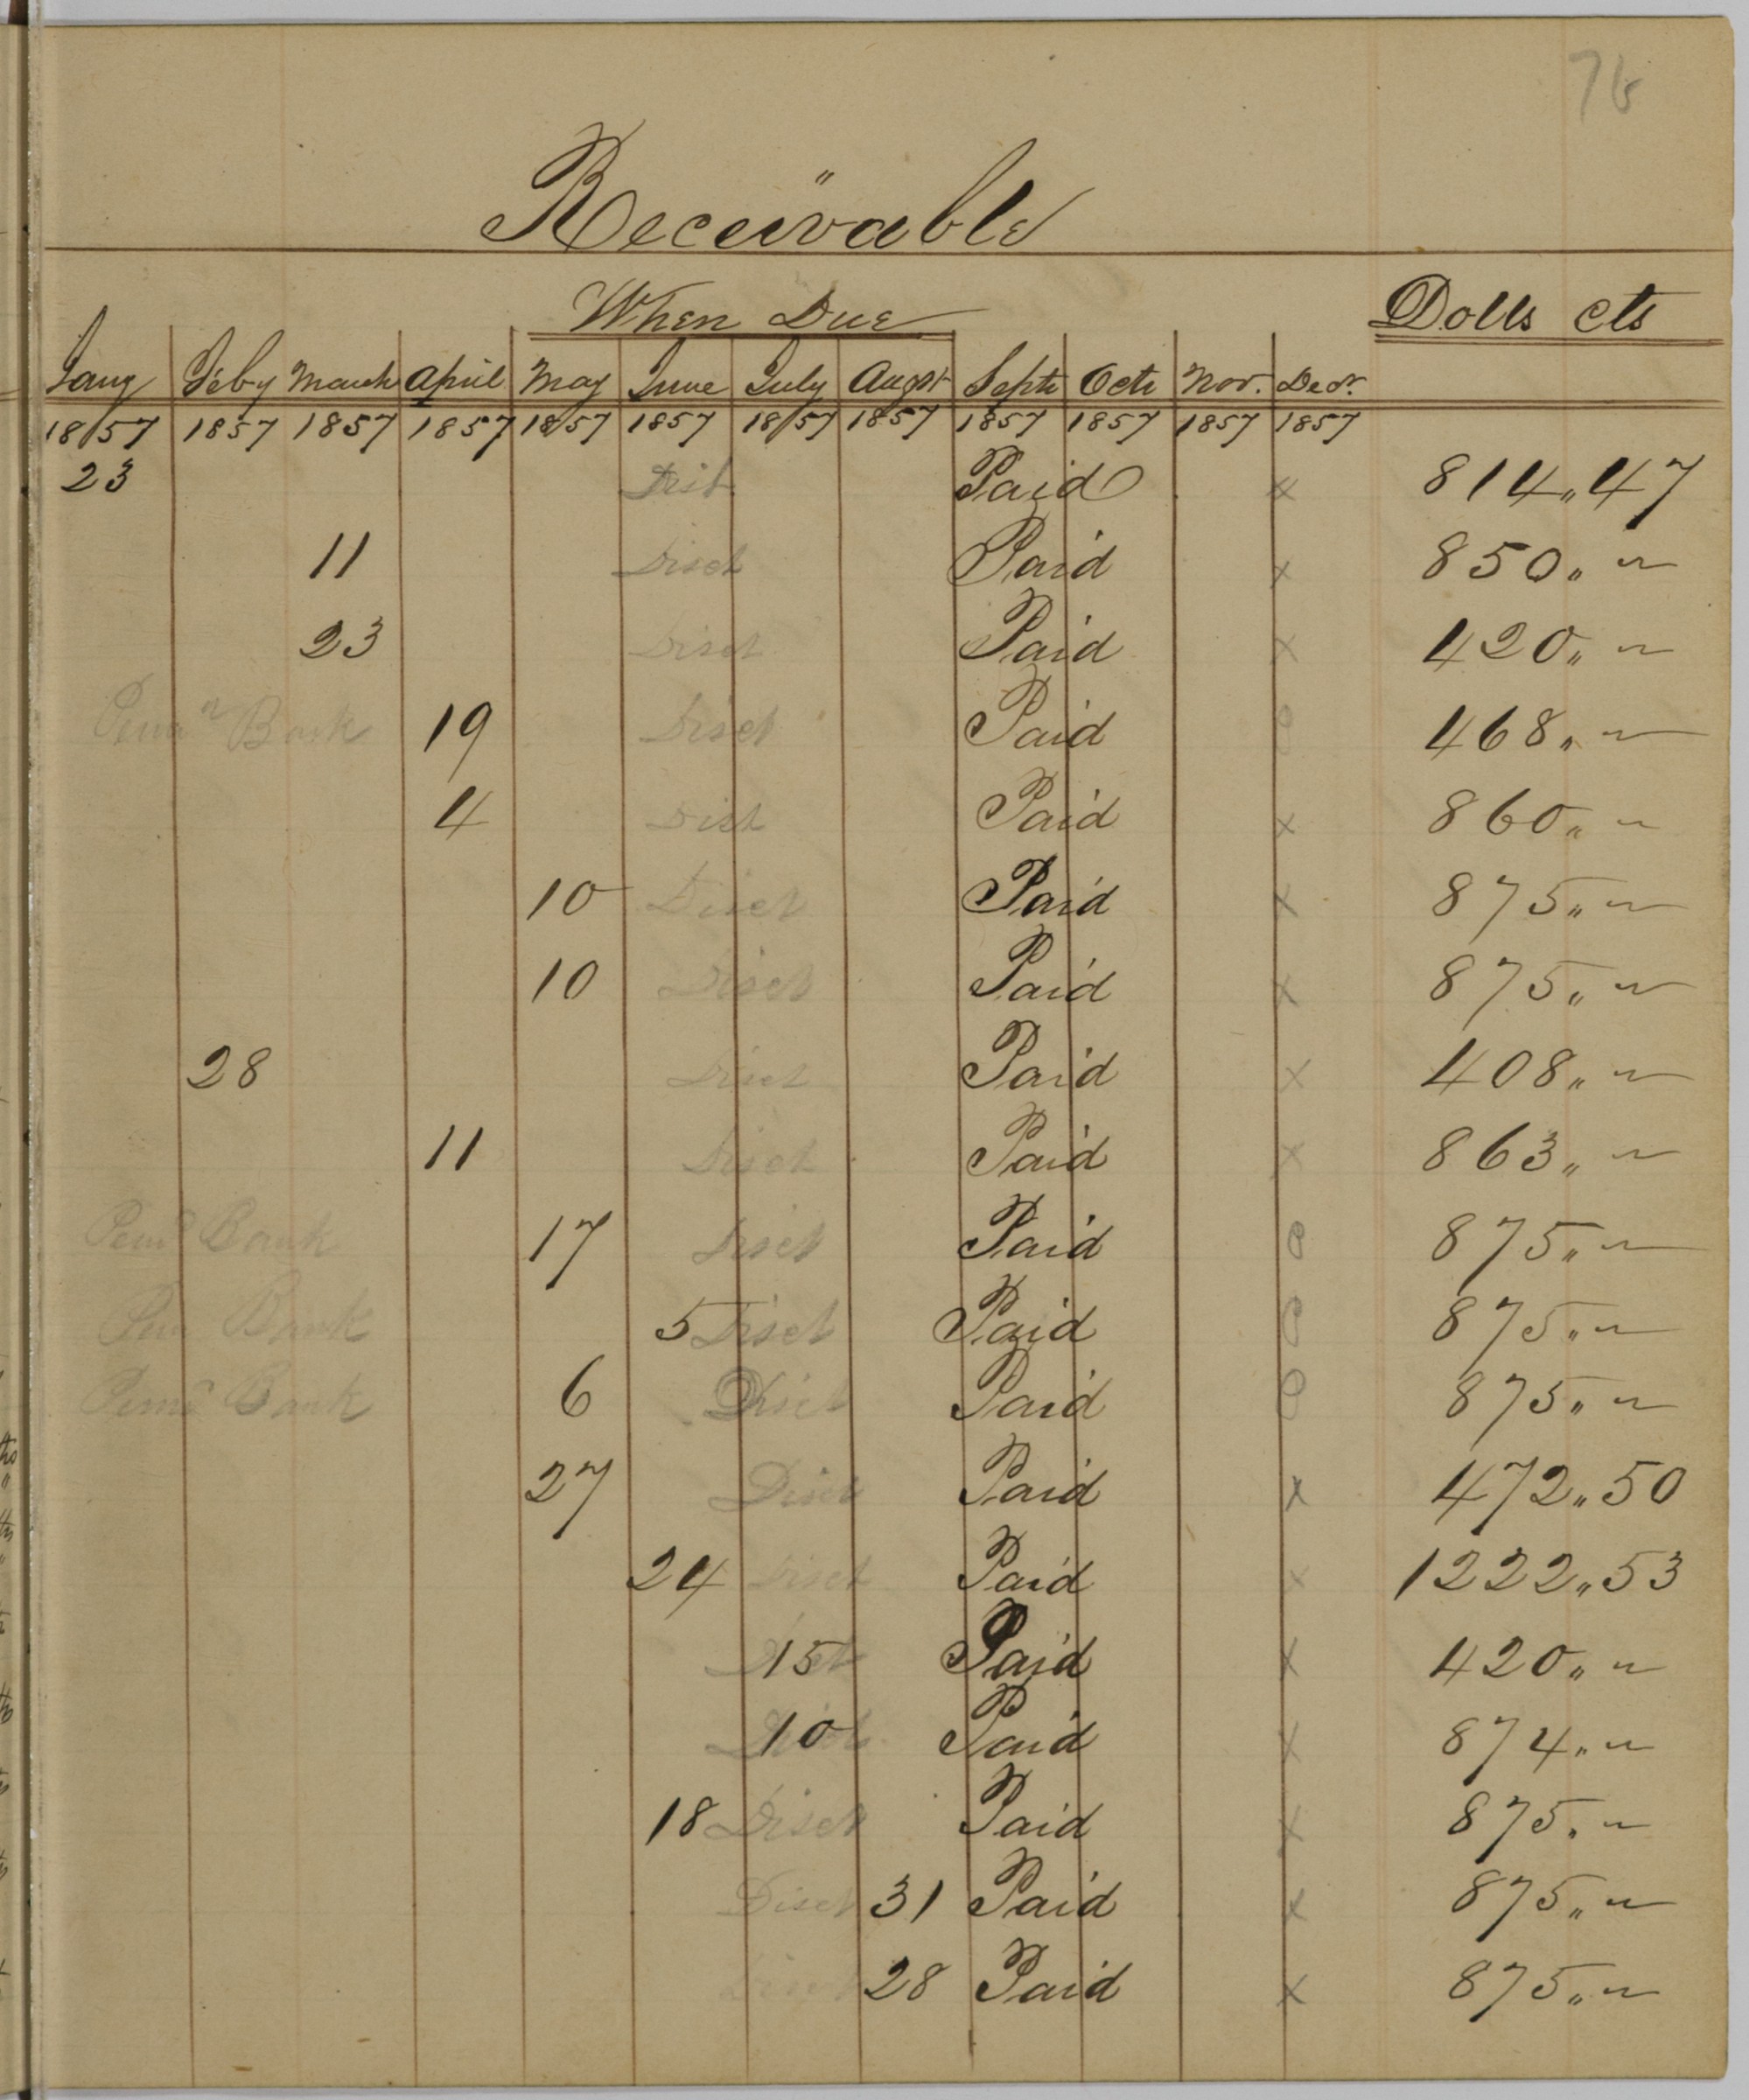 Receivable
When Due Dolls cts
Jany Feby March April May June July Augst Septr Octr Nov. Decr.
1857 1857 1857 1857 1857 1857 1857 1857 1857 1857 1857 1857
23 Paid x 814„47
11 Disct Paid x 850„ ~
23 Disct Paid x 420„ ~
Bank 19 Disct Paid 468„ ~
4 Disct Paid x 860„ ~
10 Disct Paid x 875„ ~
10 Disct Paid x 875„ ~
28 Disct Paid x 408„ ~
11 Disct Paid x 863„ ~
Bank 17 Disct Paid 875„ ~
Bank 5 Disct Paid 875„ ~
Bank 6 Disct Paid 875„ ~
27 Disct Paid x 472„50
24 Disct Paid x 1222„53
Disct 15 Paid x 420„ ~
Disct 10 Paid x 874„ ~
18 Disct Paid x 875„ ~
Disct 31 Paid x 875„ ~
Disct 28 Paid x 875„ ~